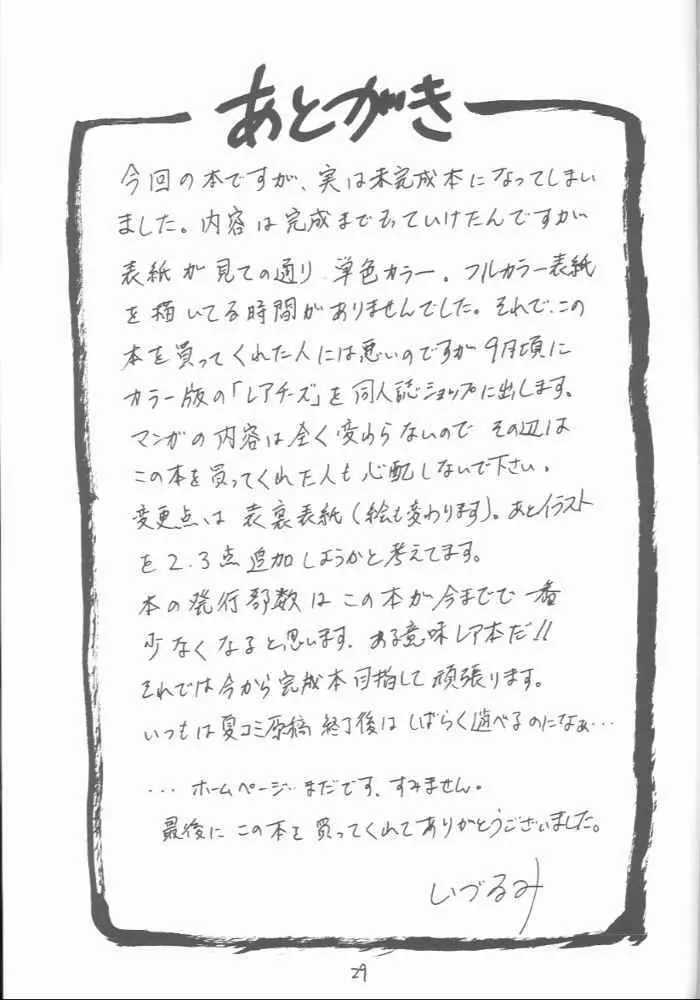 あとがき
今回の本ですが、実は未完成本になってしまい
ました。内容は完成までもっていけたんですが
表紙が見ての通り単色カラー。フルカラー表紙
を描いてる時間がありませんでした。それで、この
本を買ってくれた人には悪いのですが9月頃に
カラー版の「レアチーズ」を同人誌ショップに出します。
マンガの内容は全く変わらないのでその辺は
この本を買ってくれた人も心配しないで下さい。
変更点は表裏表紙(絵も変わります)。あとイラスト
を2.3点追加しようかと考えてます。
本の発行部数はこの本が今までで一番
少なくなると思います。ある意味レア本だ!!
それでは今から完成本目指して頑張ります。
いつもは夏コミ原稿終了後はしばらく遊べるのになぁ…
…ホームページ…まだです、すみません。
最後にこの本を買ってくれてありがとうございました。
いづるみ
29